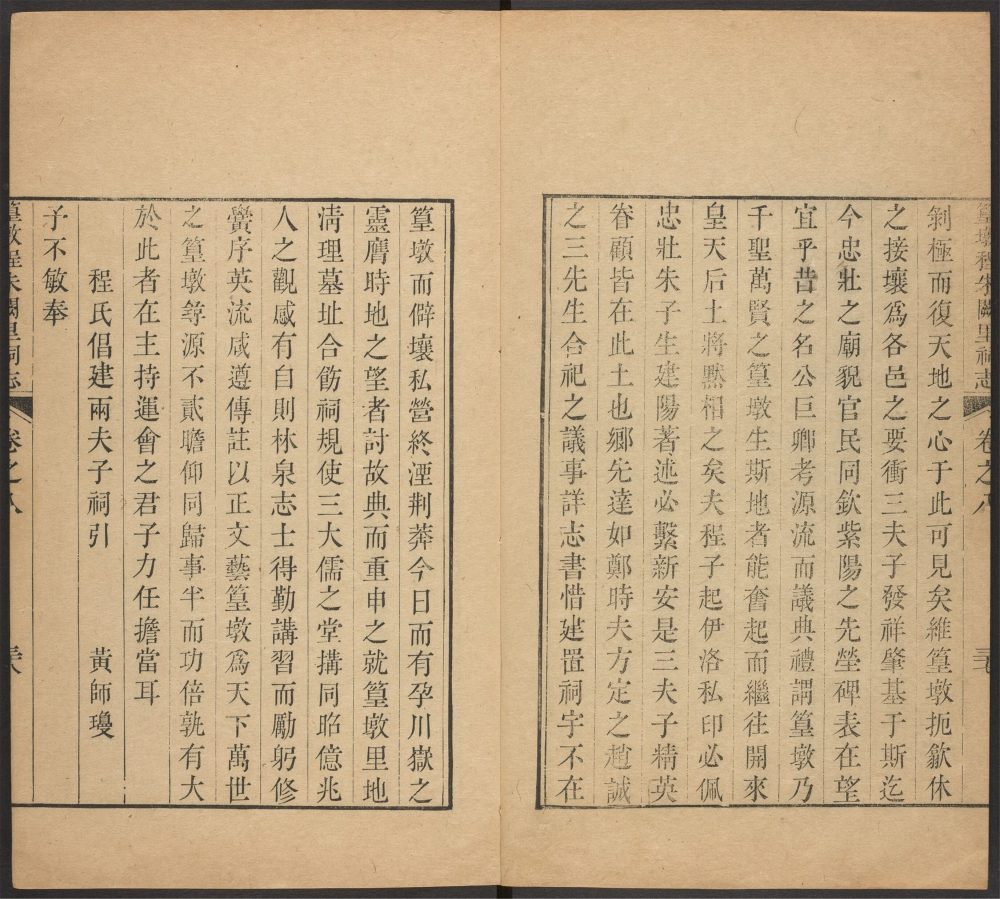 篁墩程朱闕里祠志 卷之八 三七
剝極而復天地之心于此可見矣維篁墩扼歙休
之接壤爲各邑之要衝三夫子發祥肇基于斯迄
今忠壯之廟貌官民同欽紫陽之先塋碑表在望
宜乎昔之名公巨卿考源流而議典禮謂篁墩乃
千聖萬賢之篁墩生斯地者能奮起而繼往開來
皇天后土將黙相之矣夫程子起伊洛私印必佩
忠壯朱子生建陽著述必繫新安是三夫子精英
眷顧皆在此土也鄉先達如鄭時夫方定之趙誠
之三先生合祀之議事詳志書惜建置祠宇不在
篁墩而僻壤私營終湮荆莽今日而有孕川嶽之
靈膺時地之望者討故典而重申之就篁墩里地
淸理墓址合飭祠規使三大儒之堂搆同昭億兆
人之觀感有自則林泉志士得勤講習而勵躬修
黌序英流咸遵傳註以正文藝篁墩爲天下萬世
之篁墩尋源不貳瞻仰同歸事半而功倍孰有大
於此者在主持運會之君子力任擔當耳
程氏倡建兩夫子祠引 黃師瓊
予不敏奉
篁墩程朱闕里祠志 卷之八 三八